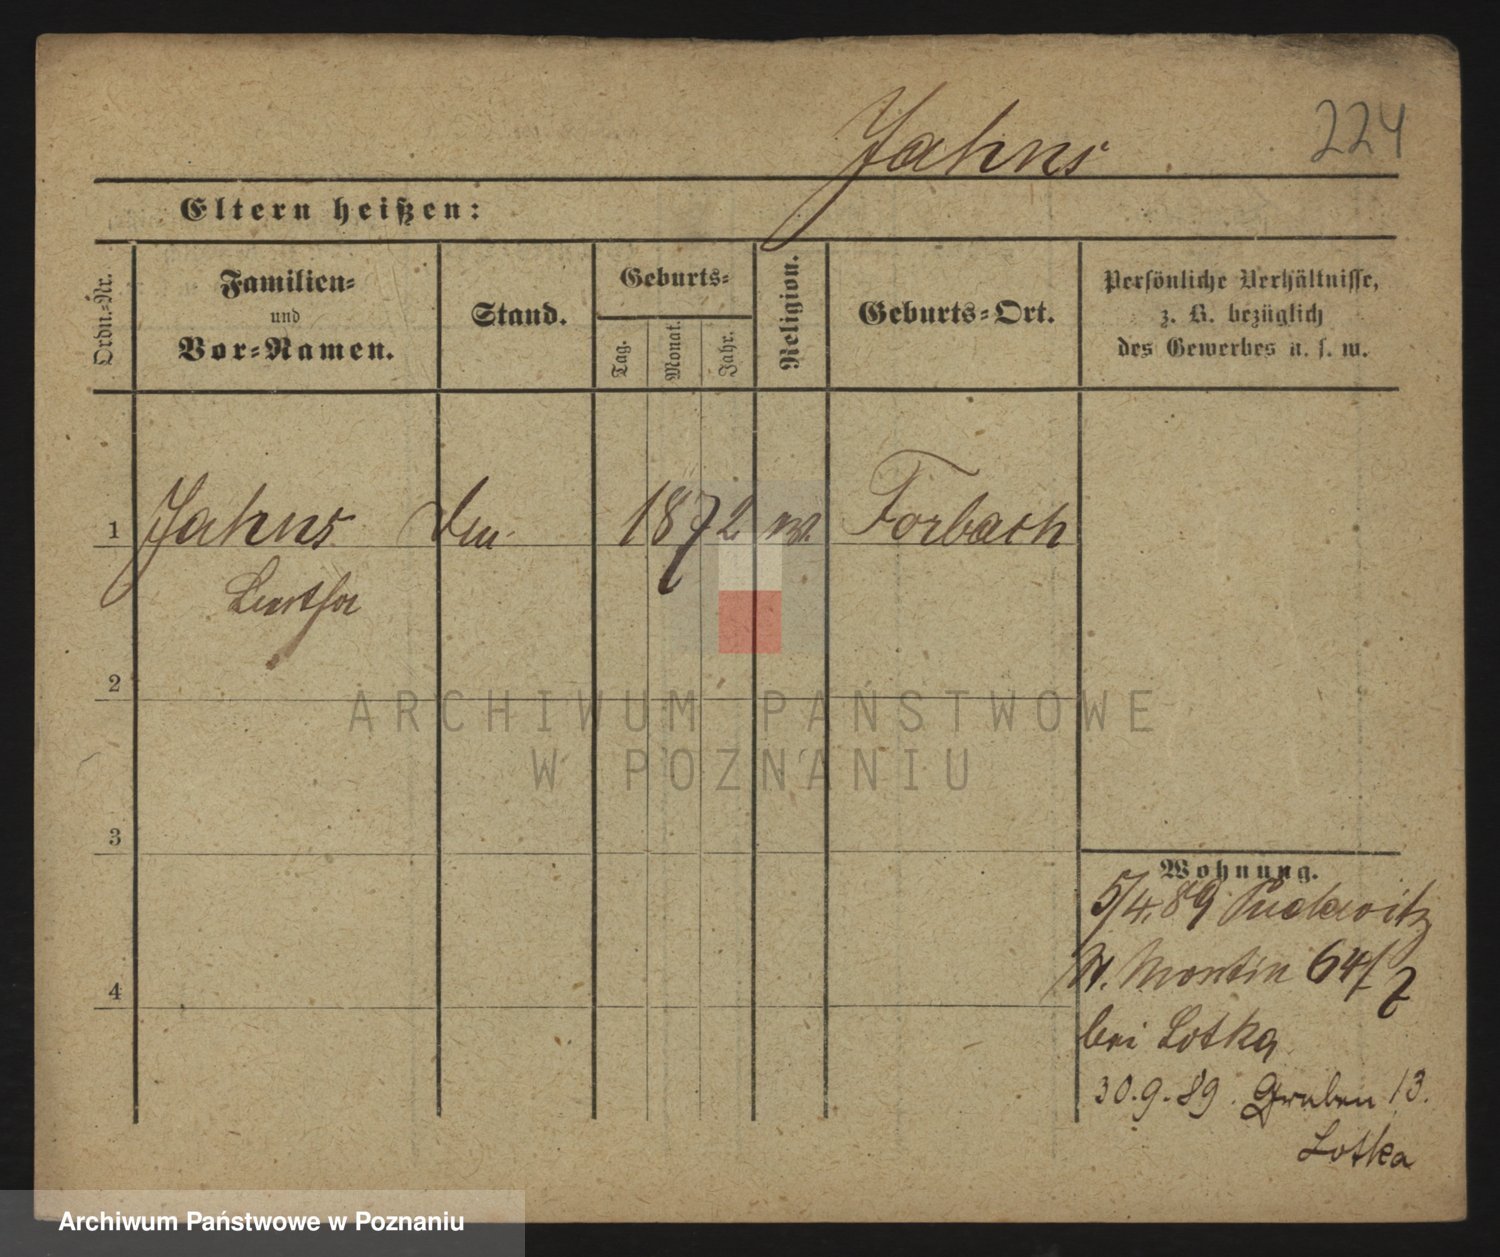 Jahns
224
Eltern heißen:
Ordn.-Nr.
Familien-
und
Vor-Namen.
Stand.
Geburts-
Tag.
Monat.
Jahr.
Religion.
Geburts-Ort.
Persönliche Verhältnisse,
z. B. bezüglich
des Gewerbes u. s. w.
1 Jahns 1872 Forbach
Bertha
2
3
4
Wohnung.
5/4.89 Pudewitz
St. Martin 64/7
bei Lotka
30.9.89. Graben 13.
Lotka
ARCHIWUM PAŃSTWOWE
W POZNANIU
Archiwum Państwowe w Poznaniu